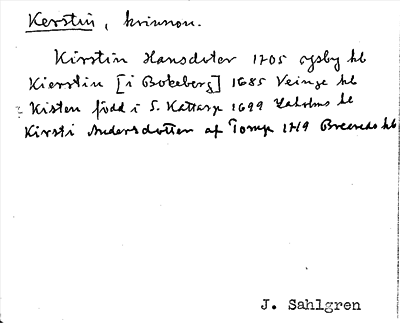 Kerstin, kvinnon.
Kirstin Hansdoter 1705 Ysby kb
Kierstin [i Bökeberg] 1685 Veinge kb
Kisten född i S. Kattarp 1699 Laholms kb
Kirsti Andersdotter af Torup 1719 Breareds kb
J. Sahlgren